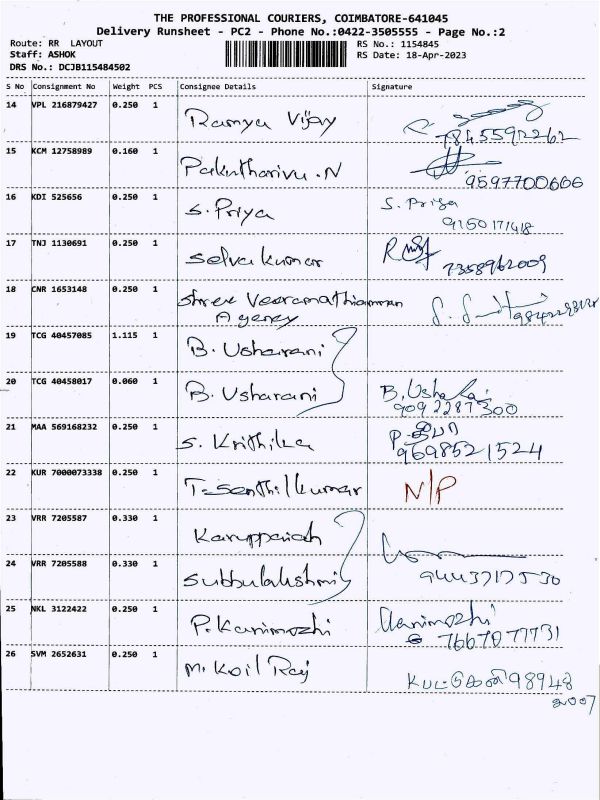 THE PROFESSIONAL COURIERS, COIMBATORE-641045
Delivery Runsheet - PC2 - Phone No.:0422-3505555 - Page No.:2
Route: RR LAYOUT
Staff: ASHOK
DRS No.: DCJB115484502
RS No.: 1154845
RS Date: 18-Apr-2023
S No Consignment No Weight PCS Consignee Details Signature
14 VPL 216879427 0.250 1 Ramya Vijay
7845592262
15 KCM 12758989 0.160 1 Pakutharivu.N
9597700666
16 KDI 525656 0.250 1 S. Priya S. Priya
9150171418
17 TNJ 1130691 0.250 1 Selva kumar
7358962009
18 CNR 1653148 0.250 1 Shree Veeramathiamman
Agency
19 TCG 40457085 1.115 1 B. Usharani
20 TCG 40458017 0.060 1 B. Usharani B. Usha
9092287300
21 MAA 569168232 0.250 1 S. Krithika
9698521524
22 KUR 7000073338 0.250 1 T. Senthilkumar N/P
23 VRR 7205587 0.330 1 Karuppaiah
24 VRR 7205588 0.330 1 Subbulakshmi
9443717530
25 NKL 3122422 0.250 1 P. Kanimozhi Kanimozhi
7667077731
26 SVM 2652631 0.250 1 M. Koil Raj
98948
2007